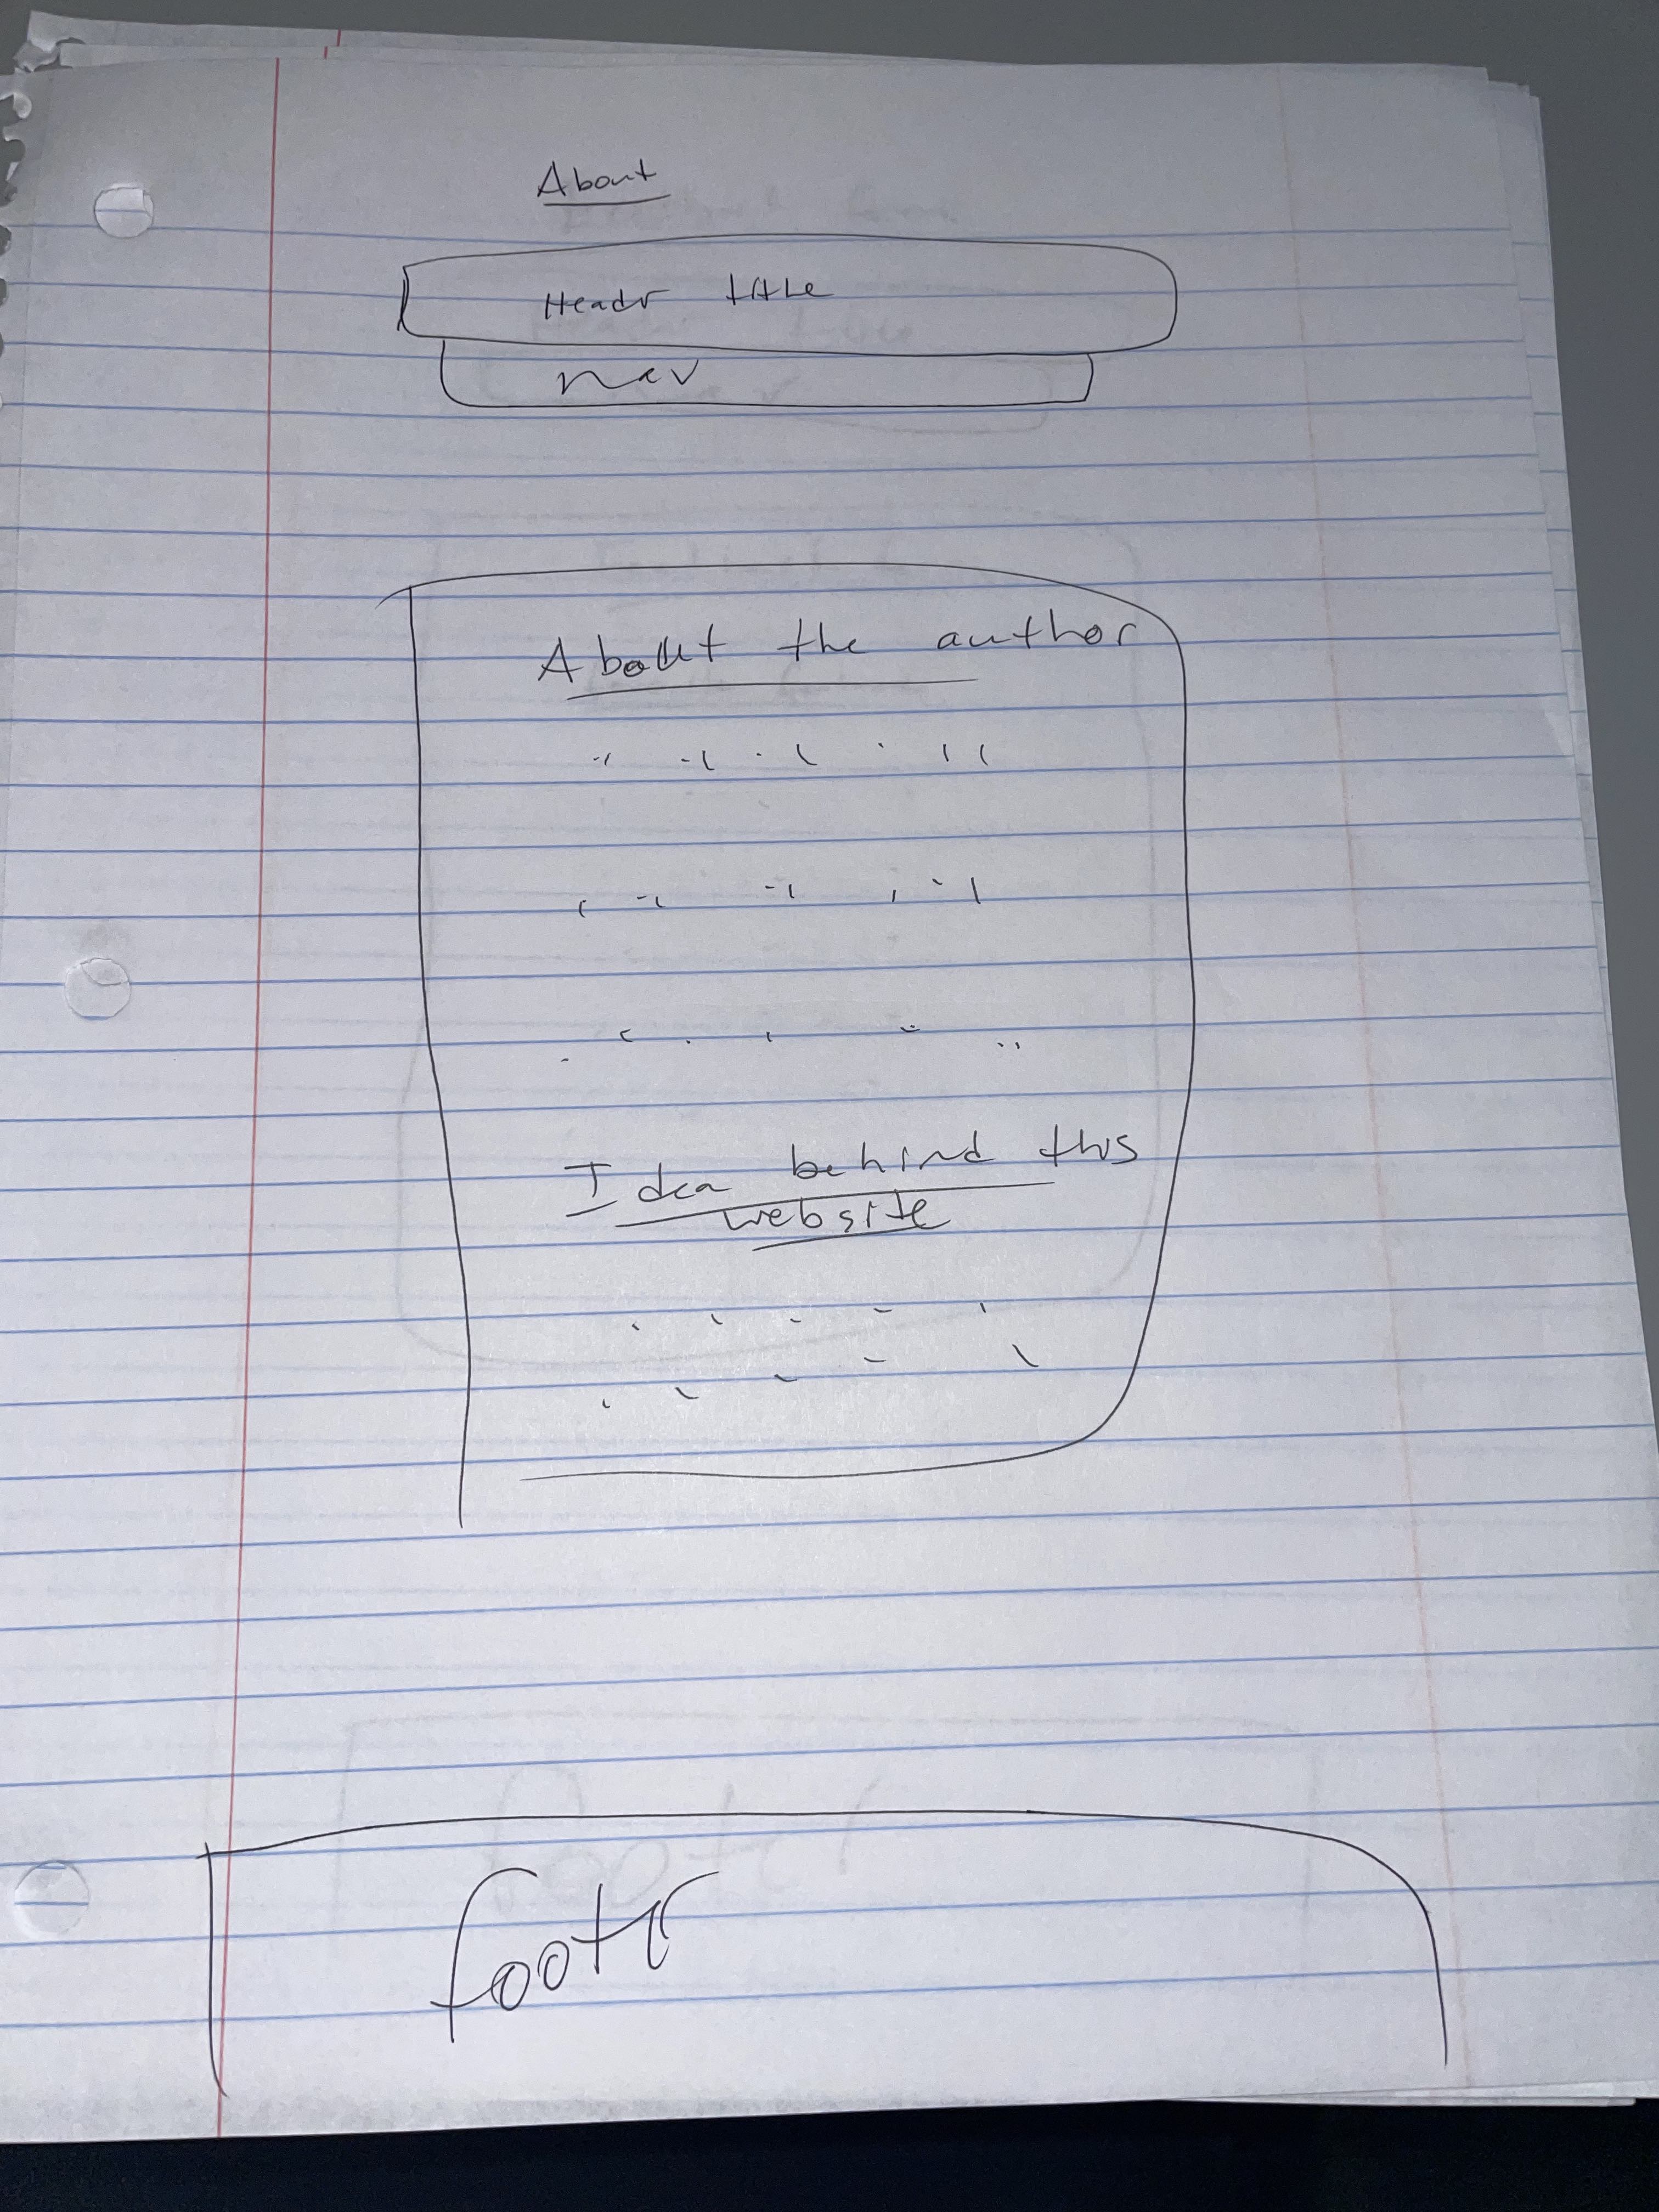 About
Headr title
nav
About the author
Idea behind this
website
footr